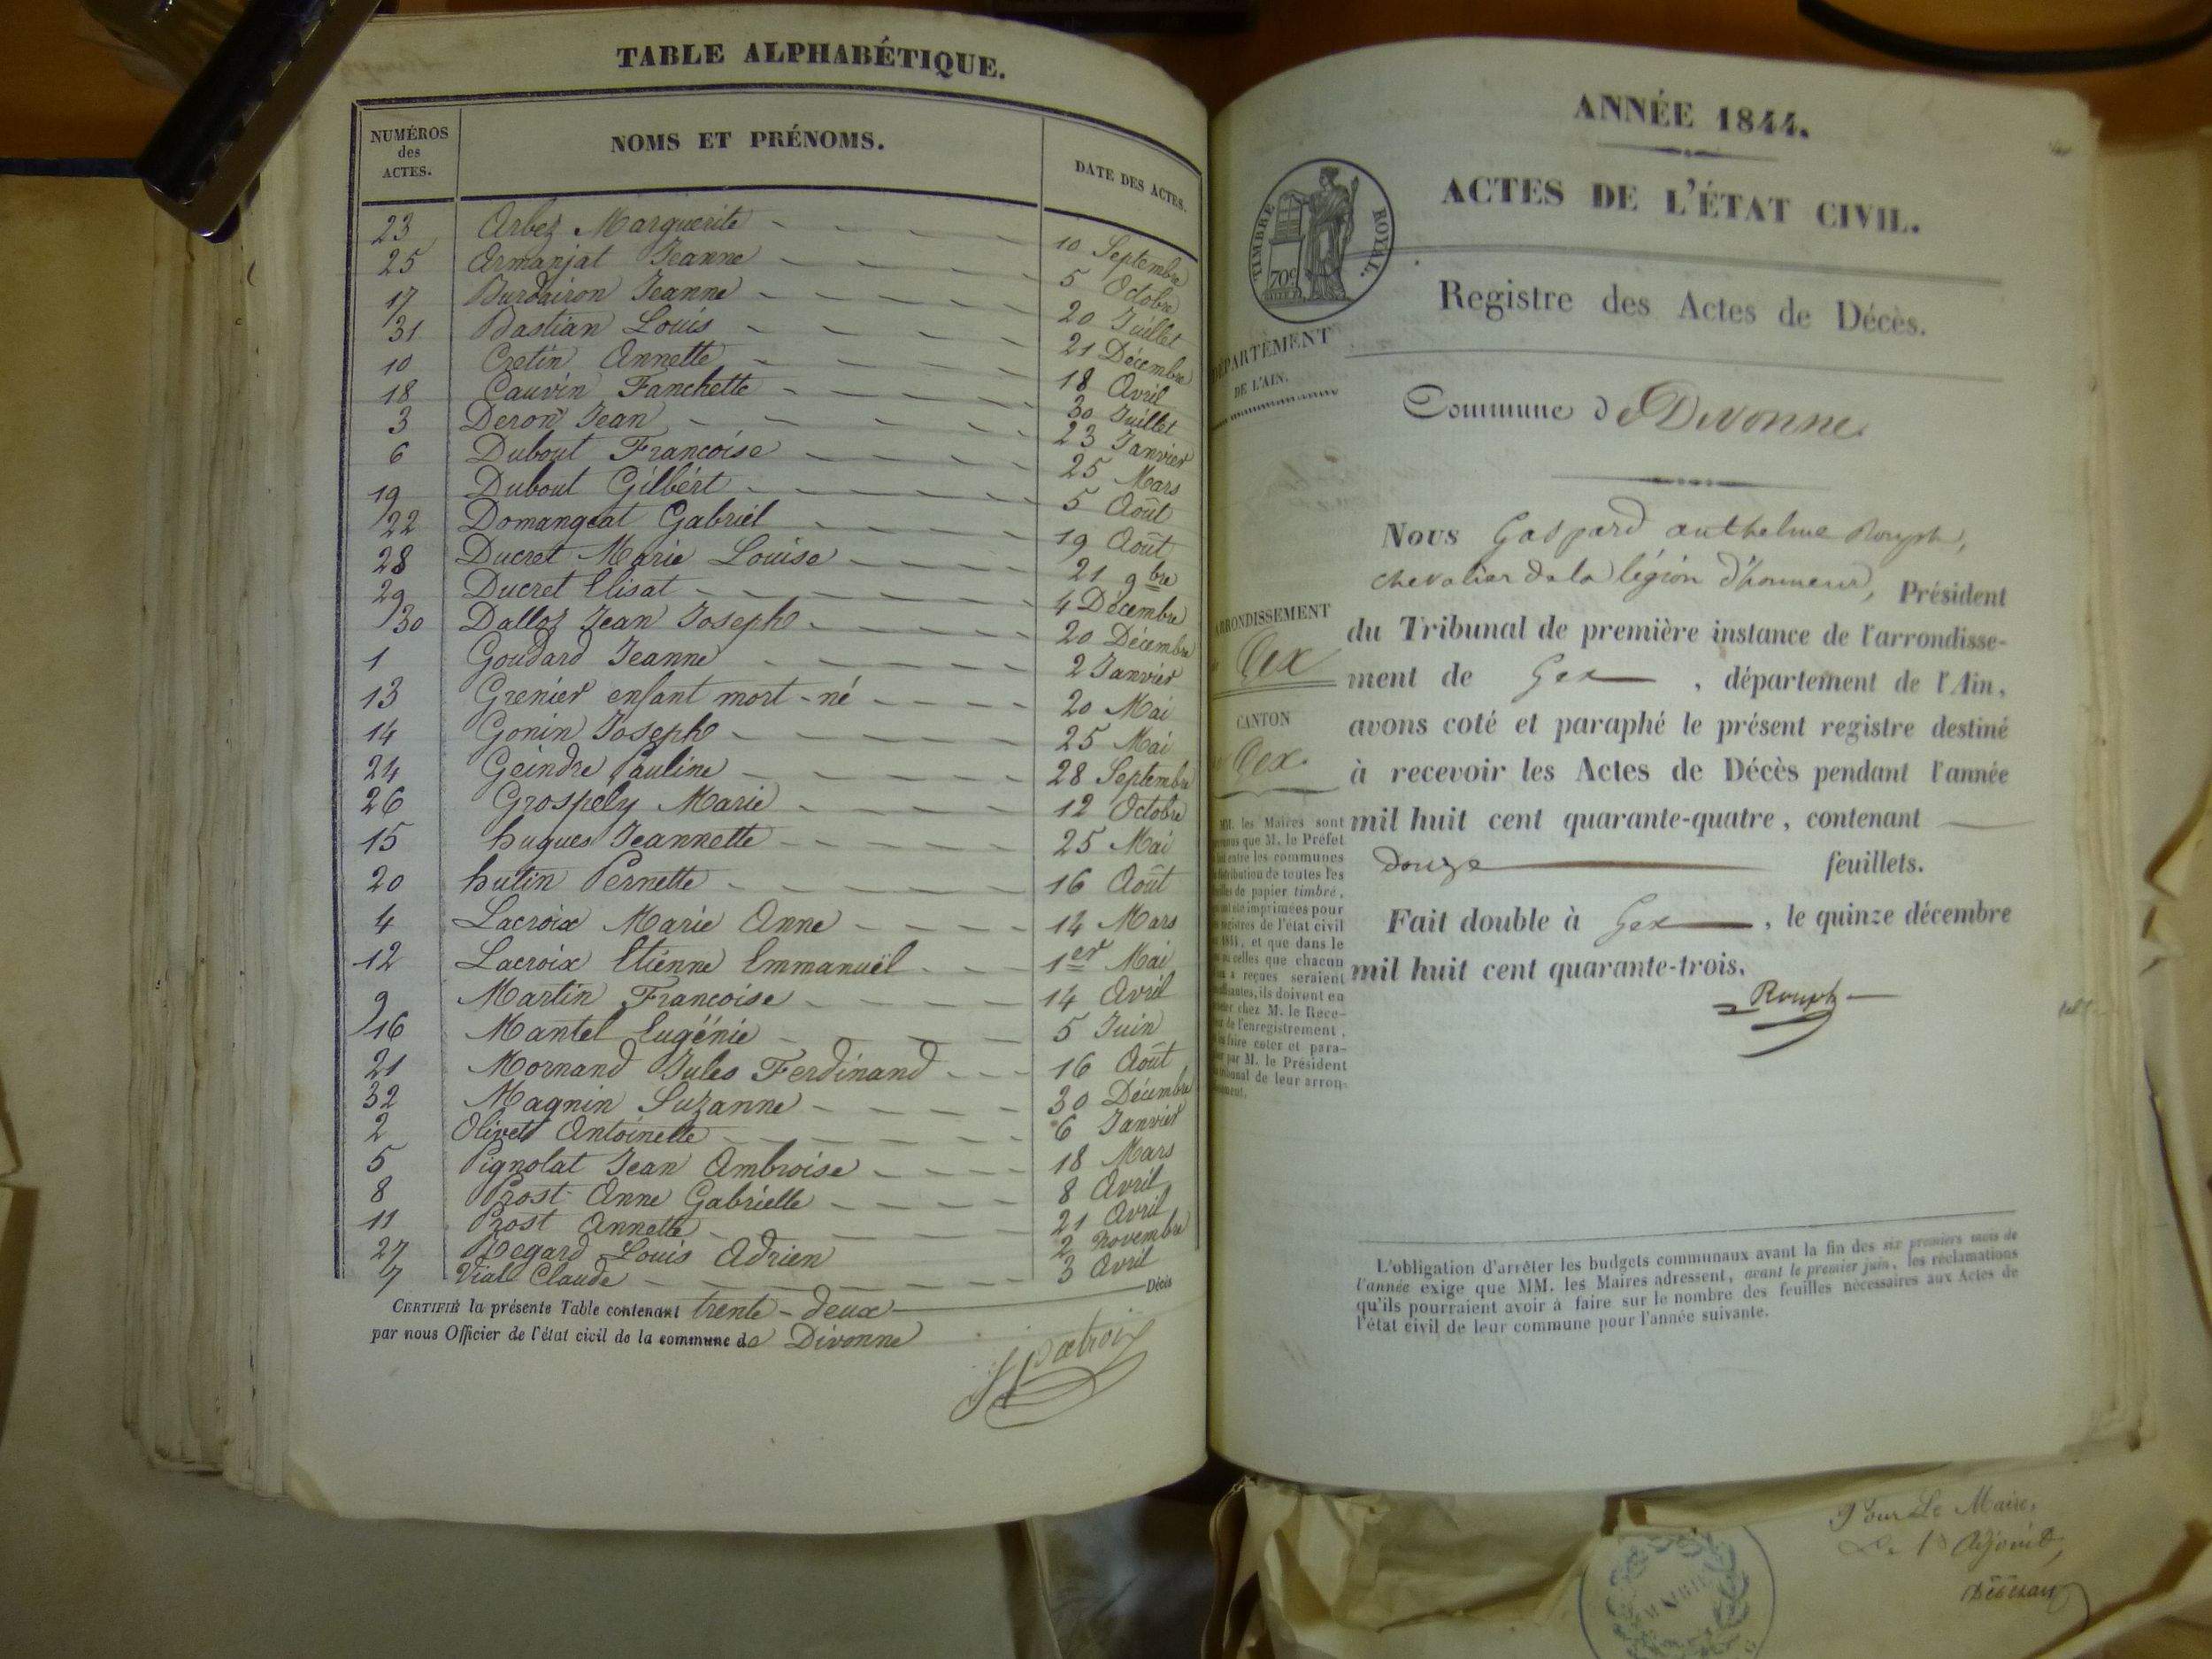 TABLE ALPHABÉTIQUE.
NUMÉROS des ACTES. NOMS ET PRÉNOMS. DATE DES ACTES.
23 Arbez Marguerite 10 Septembre
25 Armanjat Jeanne 5 Octobre
17 Burdairon Jeanne 20 Juillet
31 Bastian Louis 21 Décembre
10 Cretin Annette 18 Avril
18 Cauvin Fanchette 30 Juillet
3 Deron Jean 23 Janvier
6 Dubout Françoise 25 Mars
19 Dubout Gilbért 5 Août
22 Domangeat Gabriel 19 Août
28 Ducret Marie Louise 21 9bre
29 Ducret Elisat 4 Décembre
30 Dalloz Jean Joseph 20 Décembre
1 Goudard Jeanne 2 Janvier
13 Grenier enfant mort-né 20 Mai
14 Gonin Joseph 25 Mai
24 Geindre Pauline 28 Septembre
26 Grospely Marie 12 Octobre
15 hugues Jeannette 25 Mai
20 hutin Pernette 16 Août
4 Lacroix Marie Anne 14 Mars
12 Lacroix Etienne Emmanuël 1er Mai
9 Martin Françoise 14 Avril
16 Mantel Eugénie 5 Juin
21 Mornand Jules Ferdinand 16 Août
32 Magnin Suzanne 30 Décembre
2 Olivet Antoinette 6 Janvier
5 Pignolat Jean Ambroise 18 Mars
8 Prost Anne Gabrielle 8 Avril
11 Prost Annette 21 Avril
27 Regard Louis Adrien 2 Novembre
7 Vial Claude 3 Avril
CERTIFIÉ la présente Table contenant trente-deux Décès
par nous Officier de l'état civil de la commune de Divonne
ANNÉE 1844.
ACTES DE L'ÉTAT CIVIL.
TIMBRE ROYAL.
70c
Registre des Actes de Décès.
DÉPARTEMENT
DE L'AIN.
Commune de Divonne
Nous Gaspard anthelme Rouph,
chevalier de la légion d'honneur, Président
du Tribunal de première instance de l'arrondisse-
ment de Gex, département de l'Ain,
avons coté et paraphé le présent registre destiné
à recevoir les Actes de Décès pendant l'année
mil huit cent quarante-quatre, contenant
douze feuillets.
Fait double à Gex, le quinze décembre
mil huit cent quarante-trois.
Rouph
ARRONDISSEMENT
Gex
CANTON
Gex.
MM. les Maires sont
que M. le Préfet
entre les communes
distribution de toutes les
de papier timbré,
imprimées pour
registres de l'état civil
et que dans le
celles que chacun
reçues seraient
ils doivent en
chez M. le Rece-
de l'enregistrement,
faire coter et para-
par M. le Président
tribunal de leur arron-
L'obligation d'arrêter les budgets communaux avant la fin des six premiers mois de
l'année exige que MM. les Maires adressent, avant le premier juin, les réclamations
qu'ils pourraient avoir à faire sur le nombre des feuilles nécessaires aux Actes de
l'état civil de leur commune pour l'année suivante.
Pour Le Maire,
MAIRIE